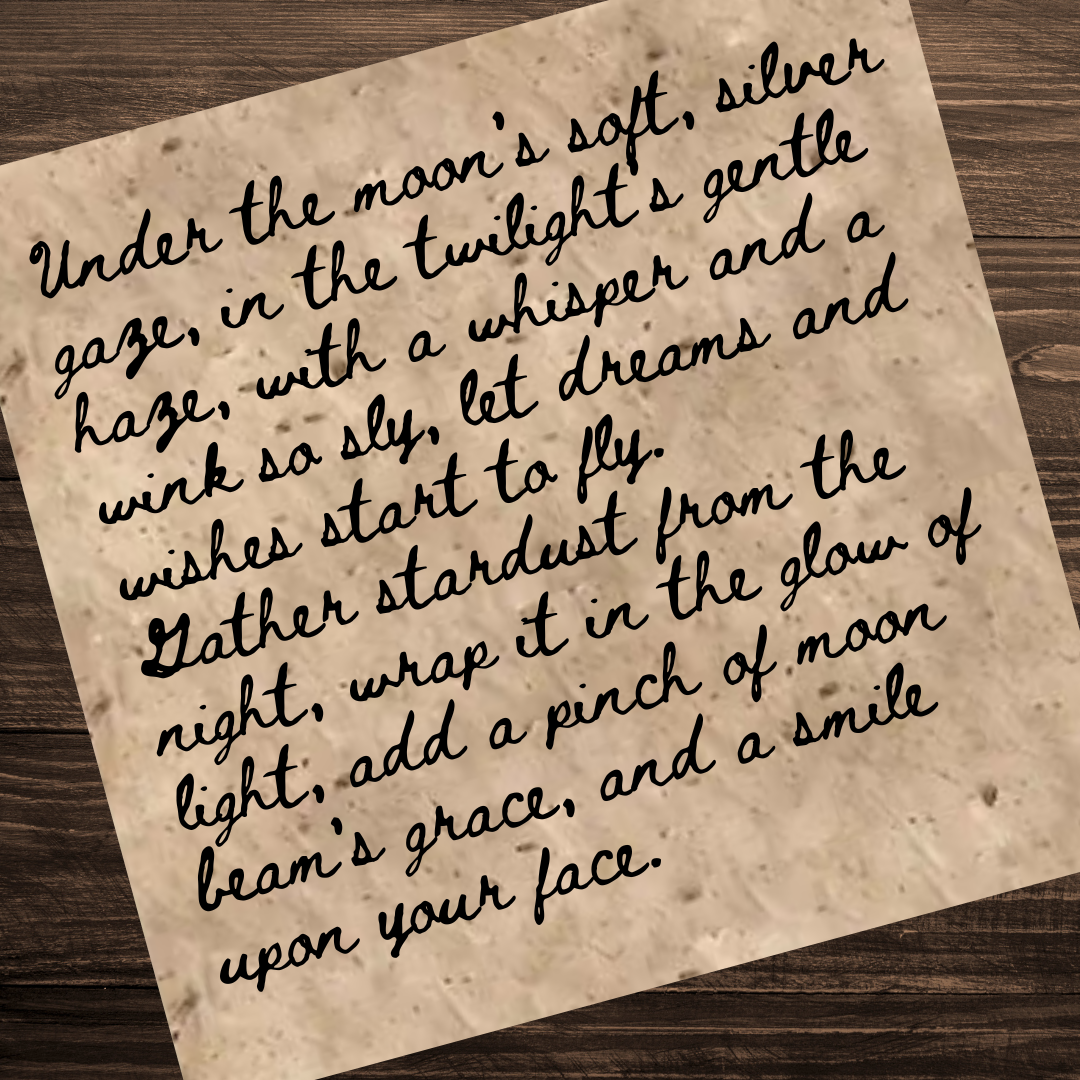 Under the moon's soft, silver
gaze, in the twilight's gentle
haze, with a whisper and a
wink so sly, let dreams and
wishes start to fly.
Gather stardust from the
night, wrap it in the glow of
light, add a pinch of moon
beam's grace, and a smile
upon your face.